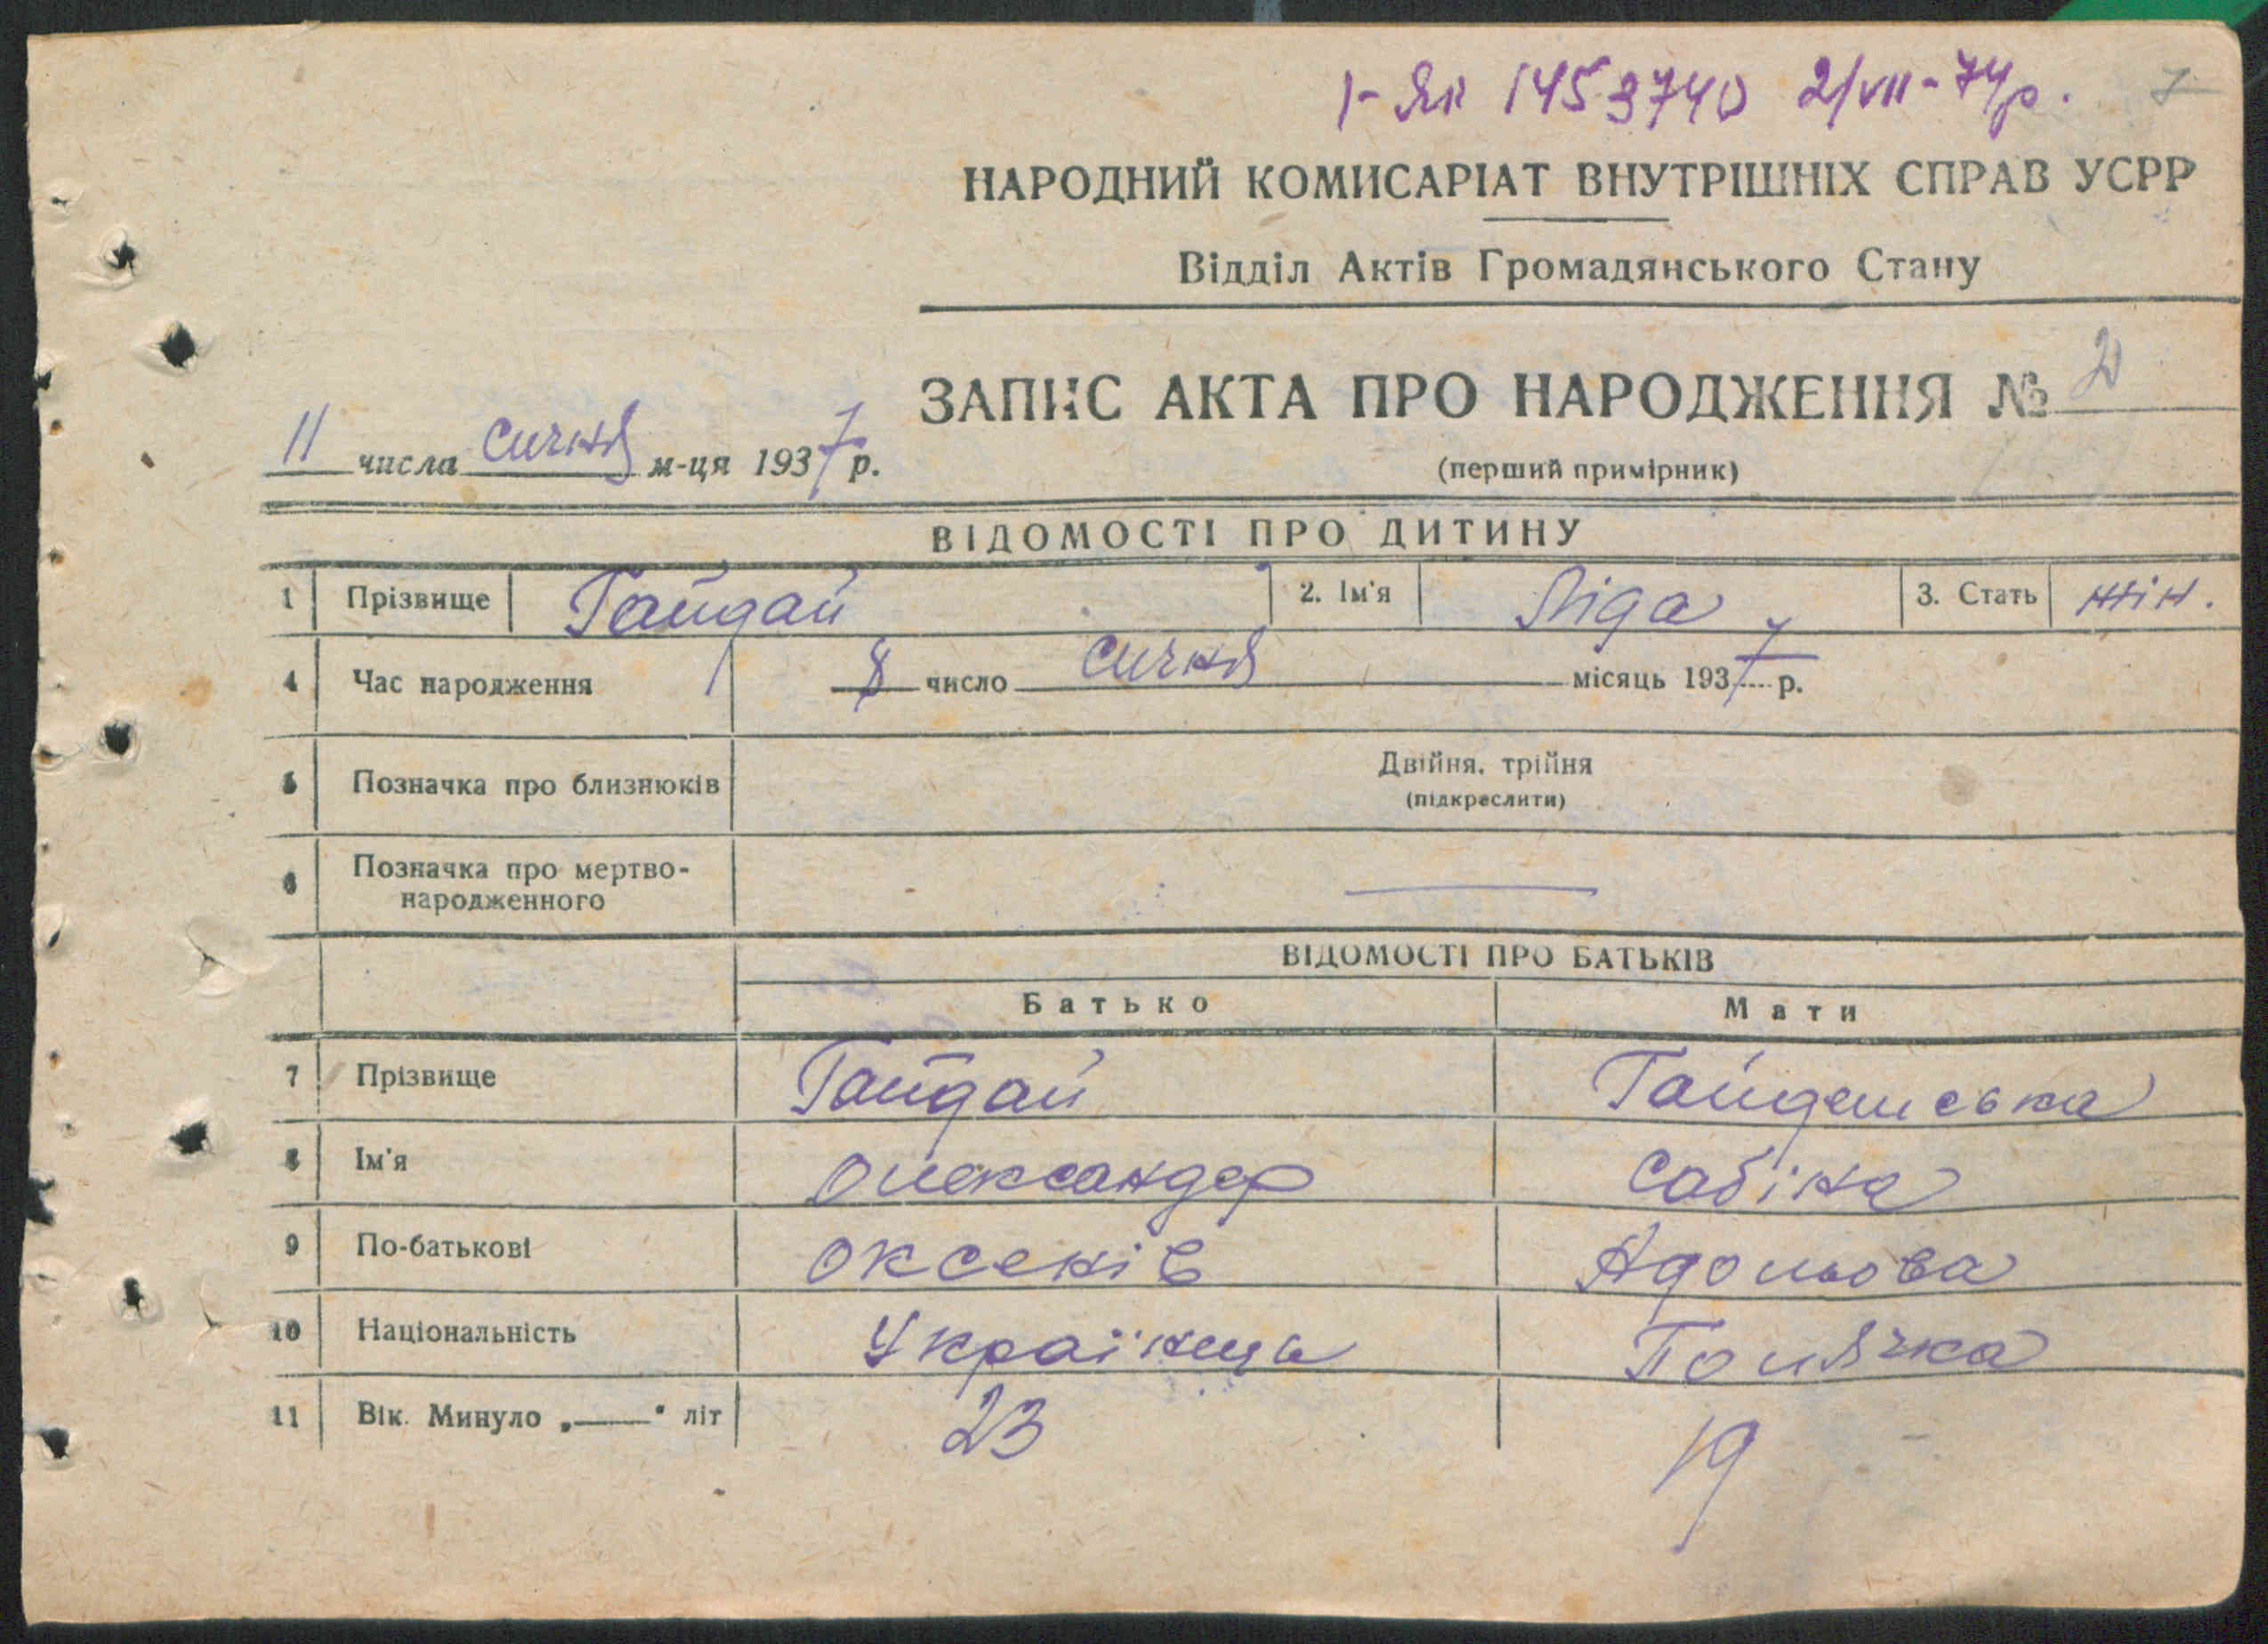 I-ЯК 1453740 2/VII-74р. 7
НАРОДНИЙ КОМИСАРІАТ ВНУТРІШНІХ СПРАВ УСРР
Відділ Актів Громадянського Стану
ЗАПИС АКТА ПРО НАРОДЖЕННЯ № 2
11 числа січня м-ця 1937 р.
(перший примірник)
ВІДОМОСТІ ПРО ДИТИНУ
1 Прізвище Гайдай 2. Ім'я Ліда 3. Стать жін.
4 Час народження 8 число січня місяць 1937 р.
5 Позначка про близнюків Двійня, трійня
(підкреслити)
6 Позначка про мертво-
народженного —
ВІДОМОСТІ ПРО БАТЬКІВ
Батько Мати
7 Прізвище Гайдай
8 Ім'я Олександер Сабіна
9 По-батькові Оксенів Адольова
10 Національність Українець Полячка
11 Вік. Минуло „——" літ 23 19